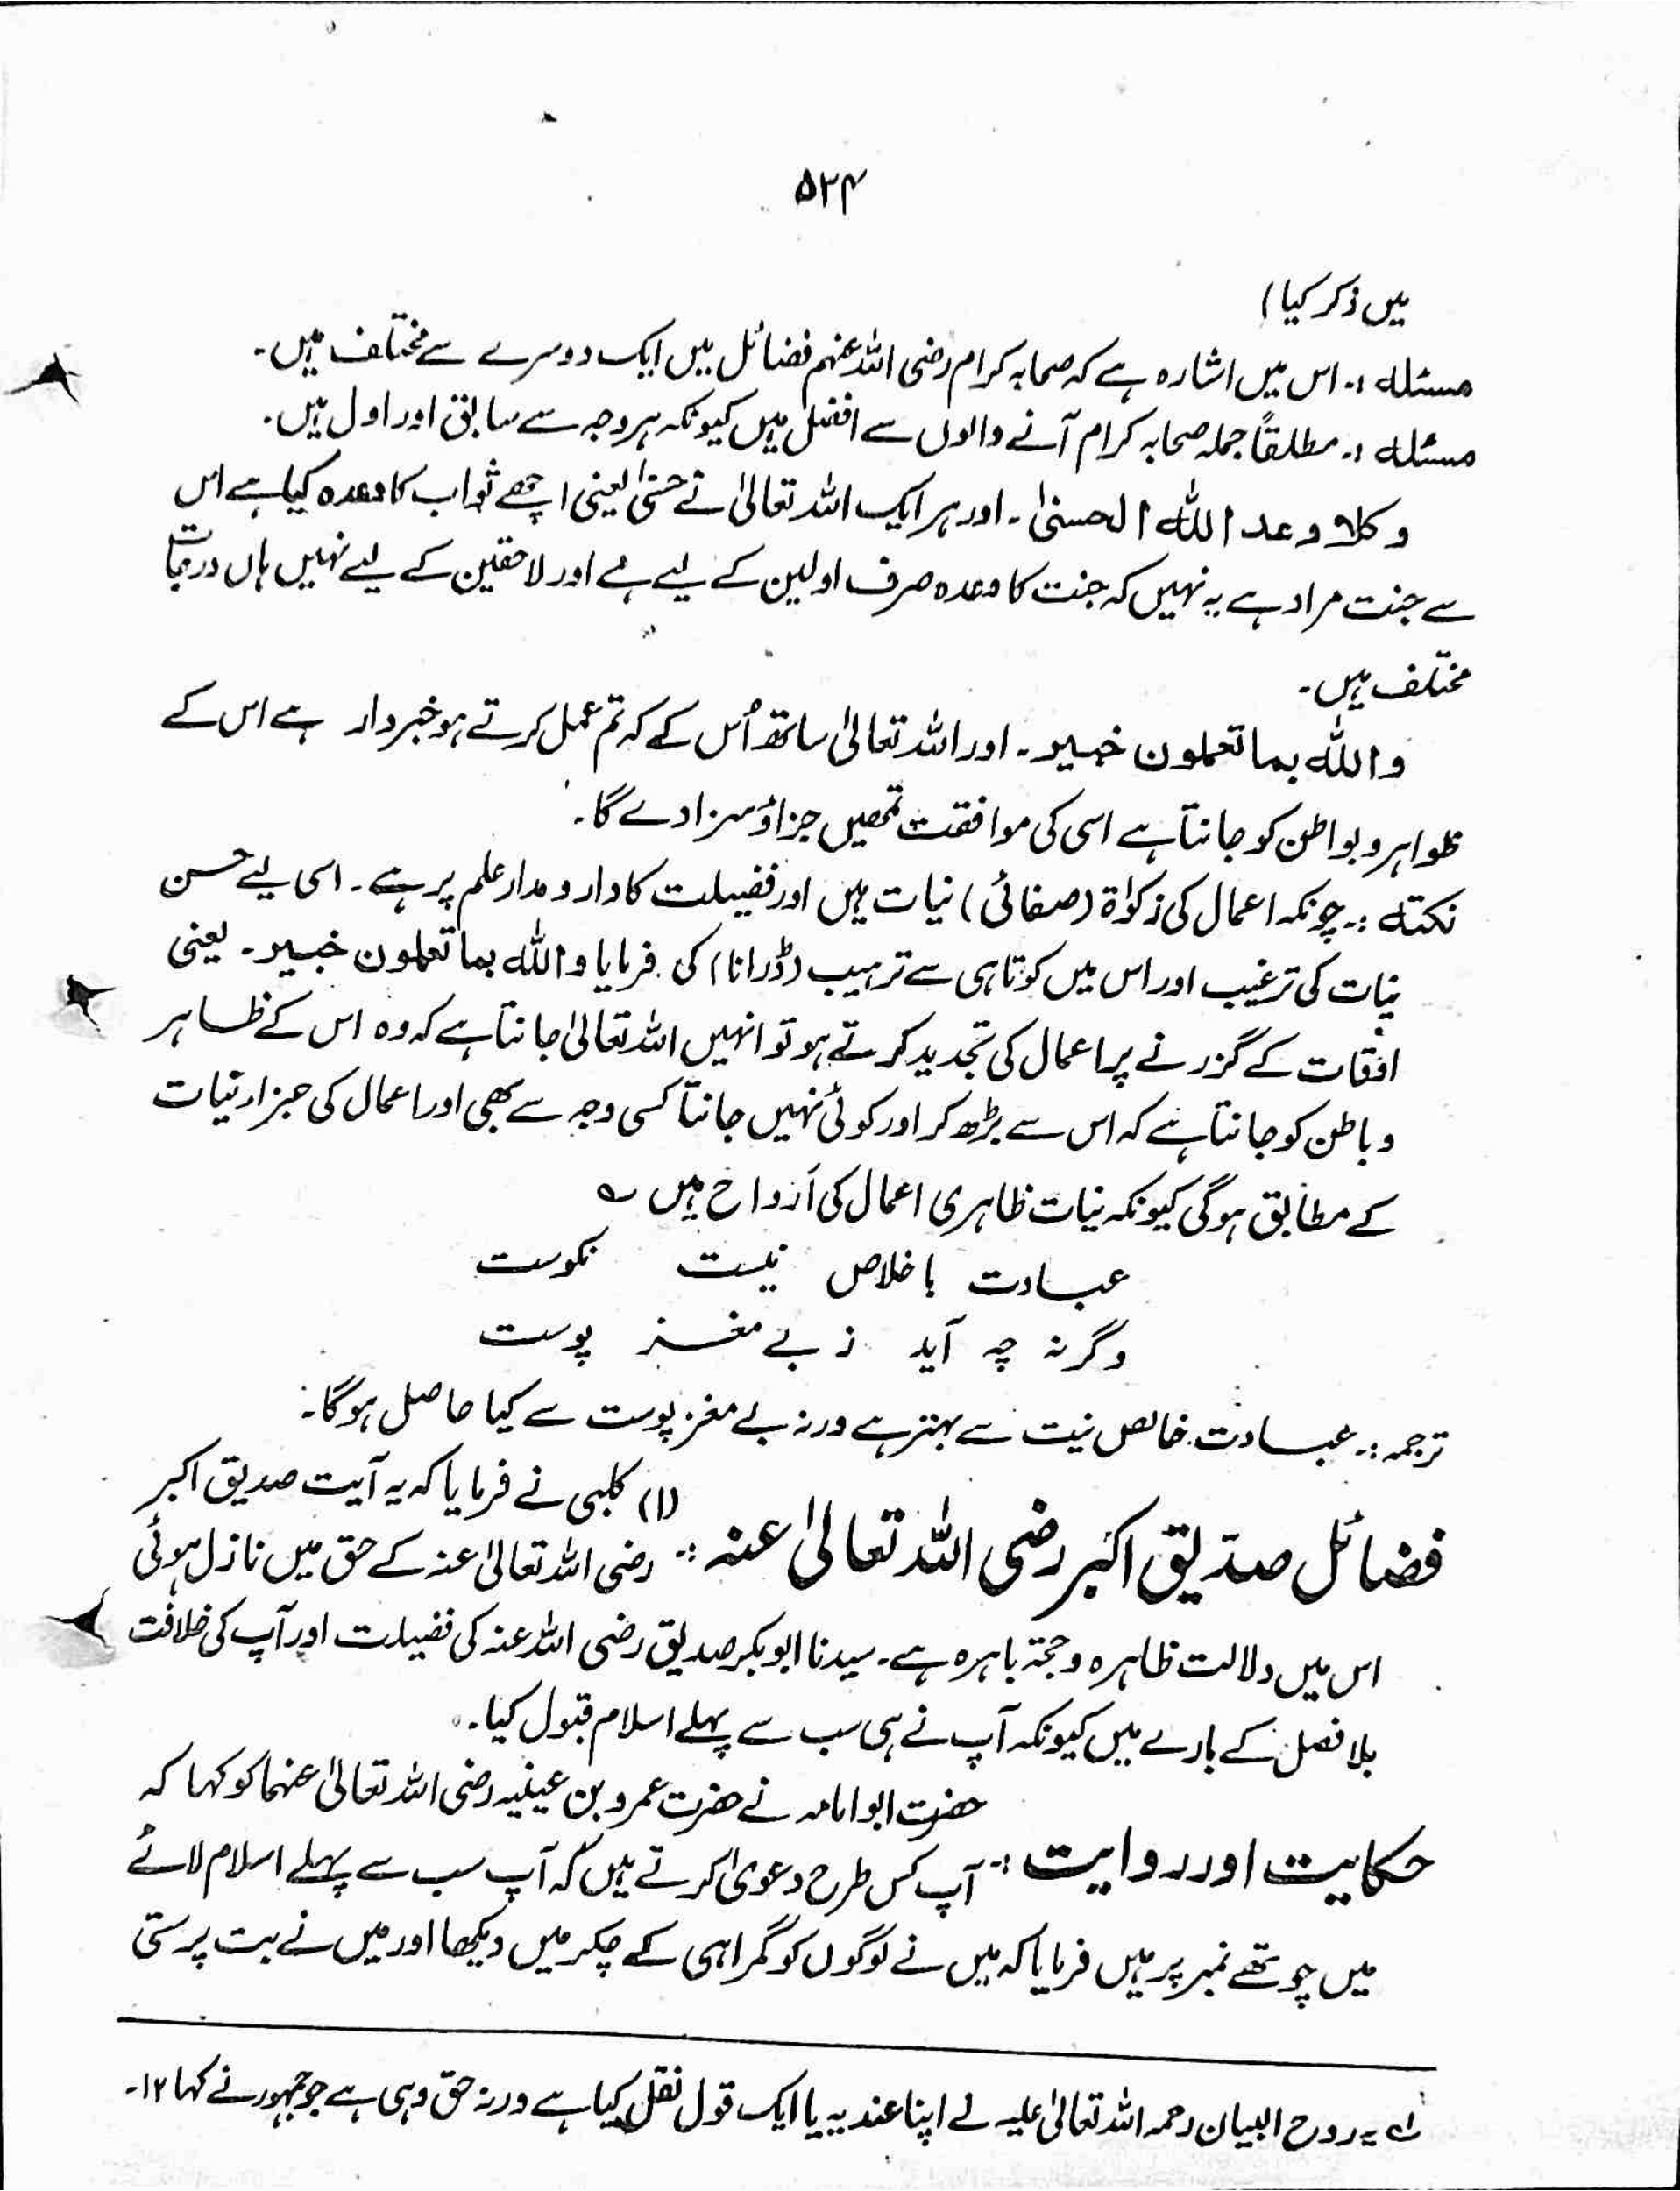 ۵۳۴
میں ذکر کیا)
مسئلہ :۔ اس میں اشارہ ہے کہ صحابہ کرام رضی اللہ عنہم فضائل میں ایک دوسرے سے مختلف ہیں۔
مسئلہ :۔ مطلقاً جملہ صحابہ کرام آنے والوں سے افضل ہیں کیونکہ ہر وجہ سے سابق اور اول ہیں۔
و کلا وعد اللہ الحسنیٰ ۔ اور ہر ایک اللہ تعالیٰ نے حسنیٰ یعنی اچھے ثواب کا وعدہ کیا ہے اس
سے جنت مراد ہے یہ نہیں کہ جنت کا وعدہ صرف اولین کے لیے ہے اور لاحقین کے لیے نہیں ہاں درجات
مختلف ہیں۔
واللہ بما تعملون خبیر۔ اور اللہ تعالیٰ ساتھ اُس کے کہ تم عمل کرتے ہو خبردار ہے اس کے
ظواہر و بواطن کو جانتا ہے اسی کی موافقت تمھیں جزاؤ سزا دے گا۔
نکتہ :۔ چونکہ اعمال کی زکوٰۃ (صفائی) نیات ہیں اور فضیلت کا دار و مدار علم پر ہے۔ اسی لیے حسن
نیات کی ترغیب اور اس میں کوتاہی سے ترہیب (ڈرانا) کی فرمایا واللہ بما تعملون خبیر۔ یعنی
اوقات کے گزرنے پر اعمال کی تجدید کرتے ہو تو انہیں اللہ تعالیٰ جانتا ہے کہ وہ اس کے ظاہر
و باطن کو جانتا ہے کہ اس سے بڑھ کر اور کوئی نہیں جانتا کسی وجہ سے بھی اور اعمال کی جزا نیات
کے مطابق ہوگی کیونکہ نیات ظاہری اعمال کی ارواح ہیں ؎
عبادت باخلاص نیت نکوست
وگرنہ چہ آید ز بے مغز پوست
ترجمہ :۔ عبادت خالص نیت سے بہتر ہے ورنہ بے مغز پوست سے کیا حاصل ہوگا۔
(۱) کلبی نے فرمایا کہ یہ آیت صدیق اکبر
فضائل صدیق اکبر رضی اللہ تعالیٰ عنہ :۔ رضی اللہ تعالیٰ عنہ کے حق میں نازل ہوئی
اس میں دلالت ظاہرہ و حجۃ باہرہ ہے۔ سیدنا ابوبکر صدیق رضی اللہ عنہ کی فضیلت اور آپ کی خلافت
بلا فصل کے بارے میں کیونکہ آپ نے ہی سب سے پہلے اسلام قبول کیا۔
حضرت ابوامامہ نے حضرت عمرو بن عیینہ رضی اللہ تعالیٰ عنہما کو کہا کہ
حکایت اور روایت :۔ آپ کس طرح دعویٰ کرتے ہیں کہ آپ سب سے پہلے اسلام لانے
میں چوتھے نمبر پر ہیں فرمایا کہ میں نے لوگوں کو گمراہی کے چکر میں دیکھا اور میں نے بت پرستی
لے = روح البیان رحمہ اللہ تعالیٰ علیہ نے اپنا عندیہ یا ایک قول نقل کیا ہے ورنہ حق وہی ہے جو جمہور نے کہا ۱۲۔